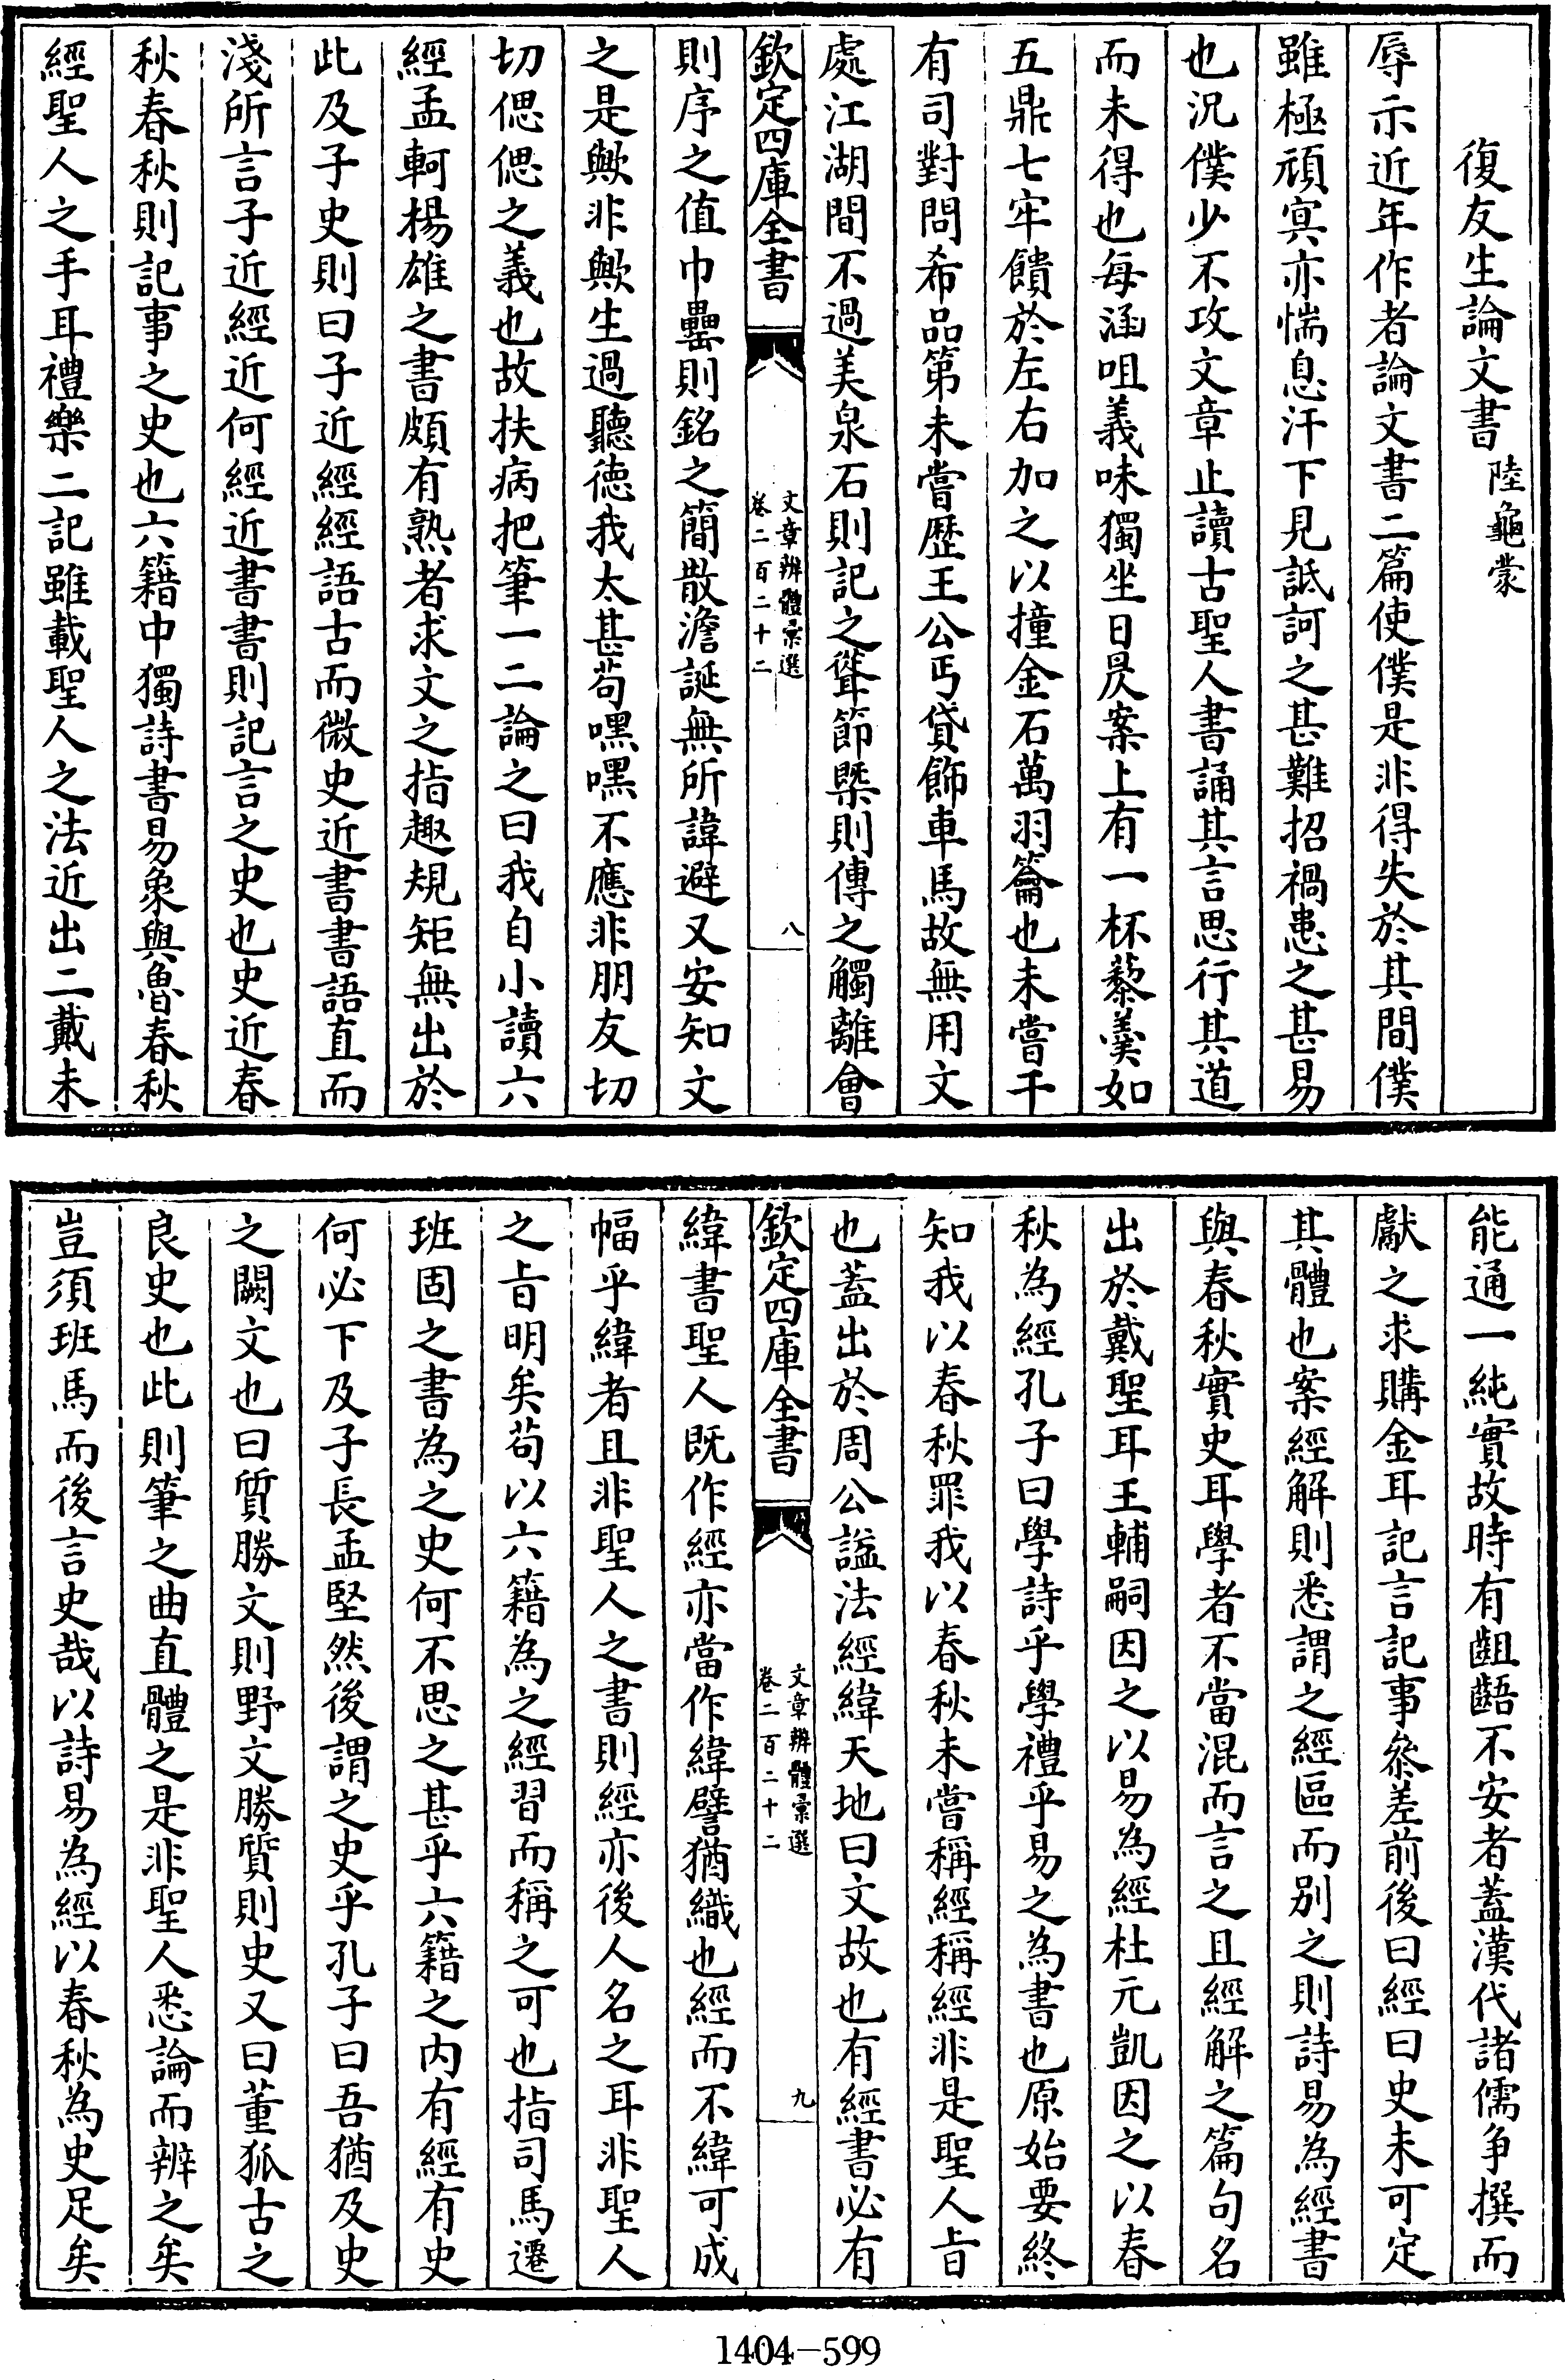 復友生論文書 陸龜蒙
辱示近年作者論文書二篇使僕是非得失於其間僕
雖極頑冥亦惴息汗下見詆訶之甚難招禍患之甚易
也況僕少不攻文章止讀古聖人書誦其言思行其道
而未得也每涵咀義味獨坐日昃案上有一杯藜羹如
五鼎七牢饋於左右加之以撞金石萬羽籥也未嘗干
有司對問希品第未嘗歷王公丐貸飾車馬故無用文
處江湖間不過美泉石則記之聳節槩則傳之觸離會
欽定四庫全書
文章辨體彙選
卷二百二十二
八
則序之值巾罍則銘之簡散澹誕無所諱避又安知文
之是歟非歟生過聽徳我太甚苟嘿嘿不應非朋友切
切偲偲之義也故扶病把筆一二論之曰我自小讀六
經孟軻楊雄之書頗有熟者求文之指趣規矩無出於
此及子史則曰子近經經語古而微史近書書語直而
淺所言子近經近何經近書書則記言之史也史近春
秋春秋則記事之史也六籍中獨詩書易象與魯春秋
經聖人之手耳禮樂二記雖載聖人之法近出二戴未
能通一純實故時有齟齬不安者蓋漢代諸儒争撰而
獻之求購金耳記言記事叅差前後曰經曰史未可定
其體也案經解則悉謂之經區而别之則詩易為經書
與春秋實史耳學者不當混而言之且經解之篇句名
出於戴聖耳王輔嗣因之以易為經杜元凱因之以春
秋為經孔子曰學詩乎學禮乎易之為書也原始要終
知我以春秋罪我以春秋未嘗稱經稱經非是聖人㫖
也蓋出於周公謚法經緯天地曰文故也有經書必有
欽定四庫全書
文章辨體彙選
卷二百二十二
九
緯書聖人既作經亦當作緯譬猶織也經而不緯可成
幅乎緯者且非聖人之書則經亦後人名之耳非聖人
之㫖明矣苟以六籍為之經習而稱之可也指司馬遷
班固之書為之史何不思之甚乎六籍之内有經有史
何必下及子長孟堅然後謂之史乎孔子曰吾猶及史
之闕文也曰質勝文則野文勝質則史又曰董狐古之
良史也此則筆之曲直體之是非聖人悉論而辨之矣
豈須班馬而後言史哉以詩易為經以春秋為史足矣
1404-599